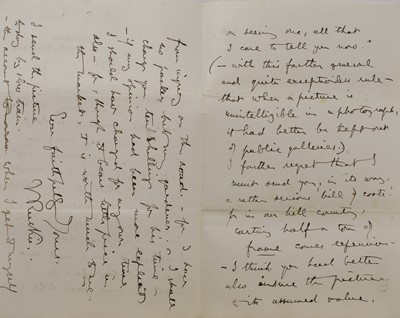 on seeing one, all that
I care to tell you now."
(- with this further general
and quite exceptionless rule -
that when a picture is
unintelligible in a photograph,
it had better be kept out
of public galleries.)
I further regret that I
must send you, in its way,
a rather serious bill of costs:
for in our hill country,
carting half a ton of
frame comes expensive -
- I think you had better
also insure the picture
- its assumed value.
from injury on the road - for I have
no packer but my gardener: - I shall
charge you ten shillings for his time -
- if my opinion had been more explicit
I should have charged for my own time
also - for, though it bears little price in
the market - it is worth much to me -
Ever faithfully Yours.
J Ruskin.
I send the picture
today by train
- the account when I get it myself